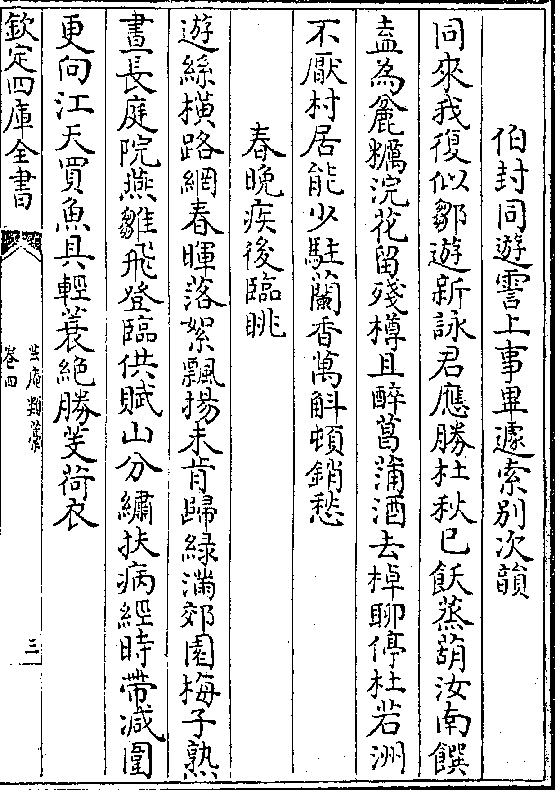 伯封同遊霅上事畢遽索別次韻
同來我復似鄒遊新詠君應勝杜秋已飫蒸葫汝南饌
盍為麄糲浣花留殘樽且醉菖蒲酒去棹聊停杜若洲
不厭村居能少駐蘭香萬斛頓銷愁
春晚疾後臨眺
遊絲横路網春暉落絮飄揚未肯歸緑滿郊園梅子熟
晝長庭院燕雛飛登臨供賦山分繡扶病經時帶减圍
更向江天買魚具輕蓑絶勝芰荷衣
欽定四庫全書
卷四
三